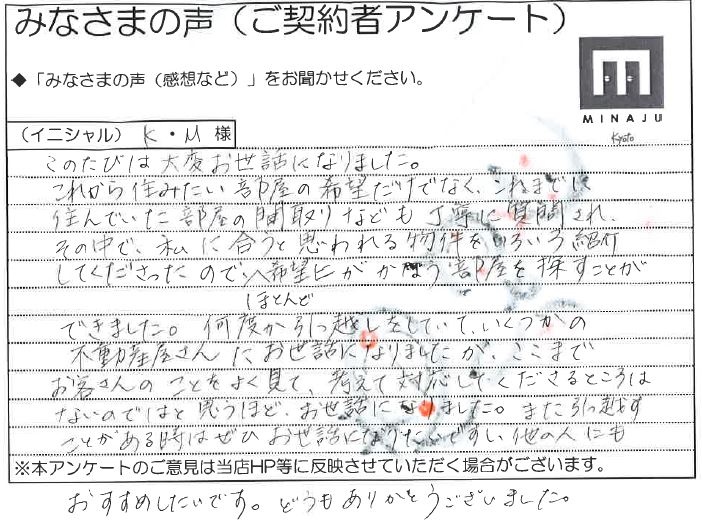 みなさまの声（ご契約者アンケート）
◆「みなさまの声（感想など）」をお聞かせください。
MINAJU
Kyoto
（イニシャル） K・M 様
このたびは大変お世話になりました。
これから住みたい部屋の希望だけでなく、これまでに
住んでいた部屋の間取りなども丁寧に質問され、
その中で、私に合うと思われる物件をいろいろ紹介
してくださったので、希望にがかなう部屋を探すことが
ほとんど
できました。何度か引っ越しをしていて、いくつかの
不動産屋さんにお世話になりましたが、ここまで
お客さんのことをよく見て、考えて対応してくださるところは
ないのではと思うほど、お世話になりました。また引っ越す
ことがある時はぜひお世話になりたいですし、他の人にも
※本アンケートのご意見は当店HP等に反映させていただく場合がございます。
おすすめしたいです。どうもありがとうございました。